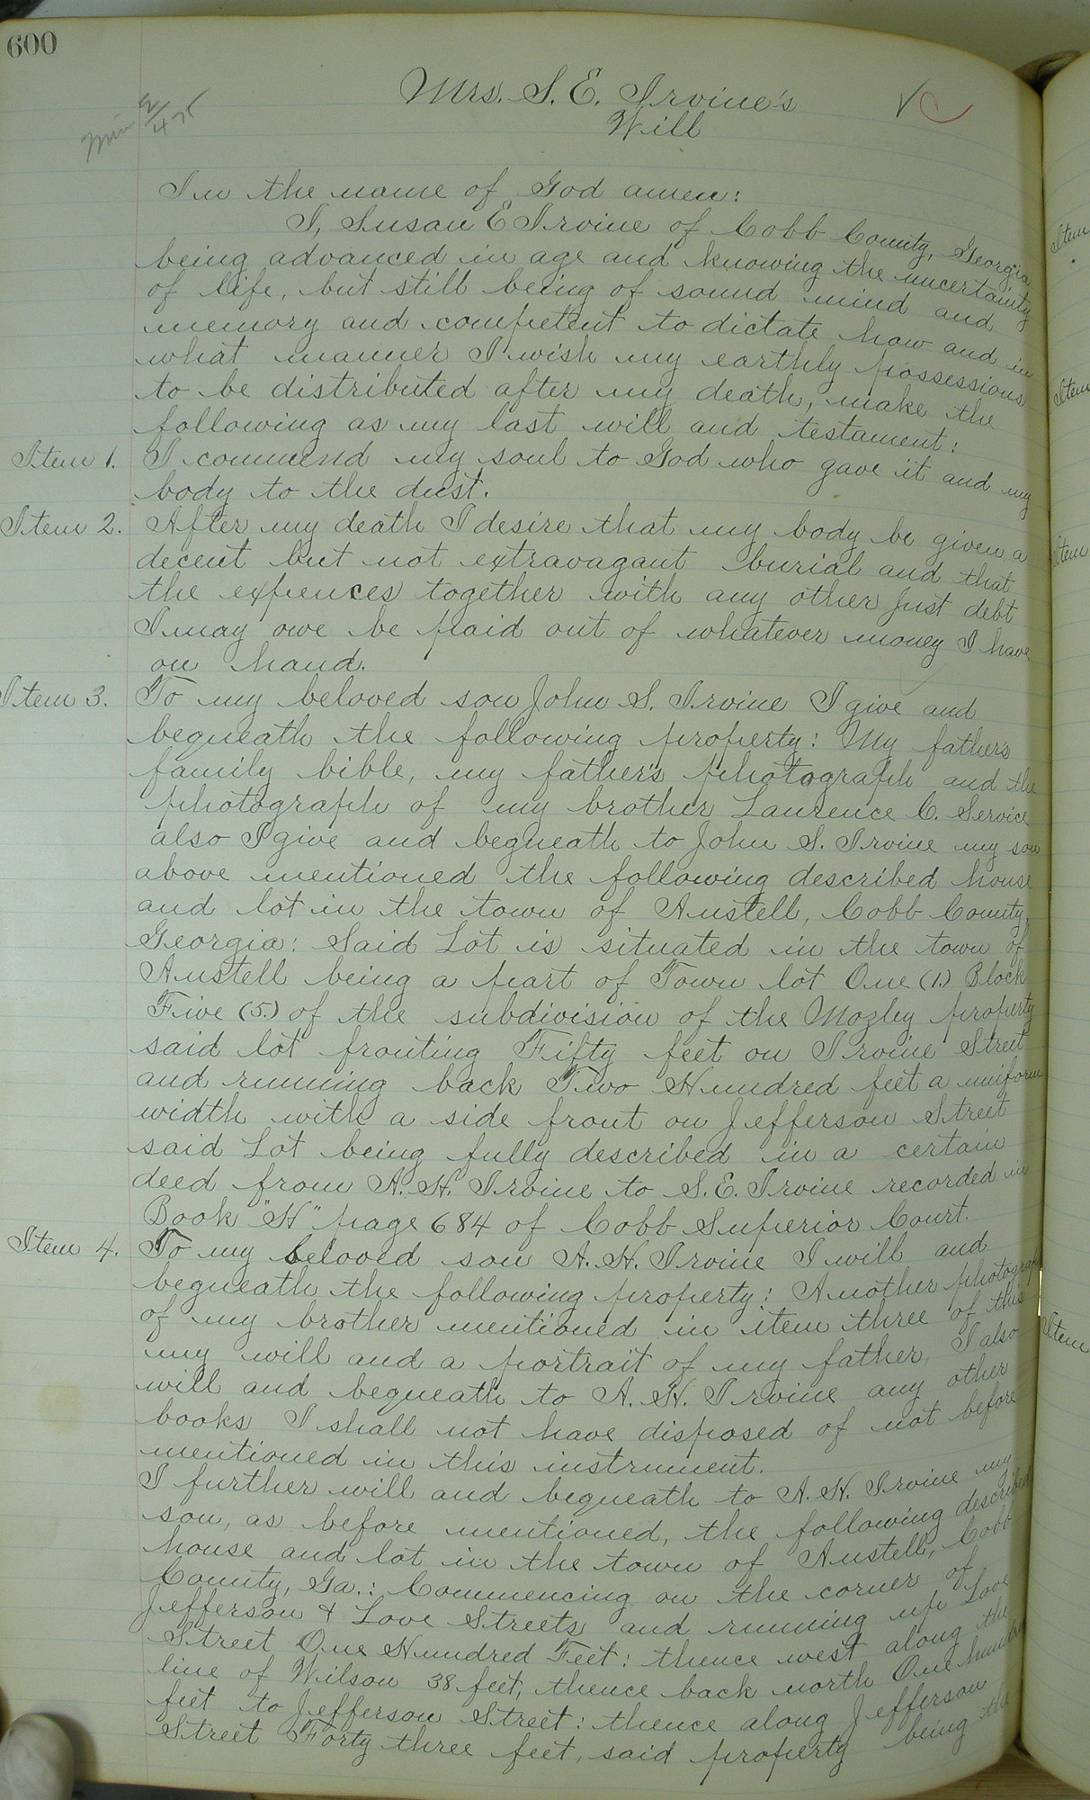 600
Mrs. S. E. Irvine's
Will
Min 2/475
In the name of God amen:
I, Susan E Irvine of Cobb County, Georgia
being advanced in age and knowing the uncertainty
of life, but still being of sound mind and
memory and competent to dictate how and in
what manner I wish my earthly possessions
to be distributed after my death, make the
following as my last will and testament:
Item 1. I commend my soul to God who gave it and my
body to the dust.
Item 2. After my death I desire that my body be given a
decent but not extravagant burial and that
the expences together with any other just debt
I may owe be paid out of whatever money I have
on hand.
Item 3. To my beloved son John S. Irvine I give and
bequeath the following property: My father's
family bible, my father's photograph and the
photograph of my brother Laurence C. Service
also I give and bequeath to John S. Irvine my son
above mentioned the following described house
and lot in the town of Austell, Cobb County,
Georgia: Said Lot is situated in the town of
Austell being a part of Town lot One (1.) Block
Five (5.) of the subdivision of the Mozley property
said lot fronting Fifty feet on Irvine Street
and running back Two Hundred feet a uniform
width with a side front on Jefferson Street
said Lot being fully described in a certain
deed from A. H. Irvine to S. E. Irvine recorded in
Book "H" page 684 of Cobb Superior Court.
Item 4. To my beloved son A. H. Irvine I will and
bequeath the following property: Another photograph
of my brother mentioned in item three of this
my will and a portrait of my father, I also
will and bequeath to A. H. Irvine any other
books I shall not have disposed of not before
mentioned in this instrument.
I further will and bequeath to A. H. Irvine my
son, as before mentioned, the following described
house and lot in the town of Austell, Cobb
County, Ga.: Commencing on the corner of
Jefferson & Love Streets and running up Love
Street One Hundred Feet: thence west along the
line of Wilson 38 feet, thence back north One hundred
feet to Jefferson Street: thence along Jefferson
Street Forty three feet, said property being the
Item
Item
Item
Item